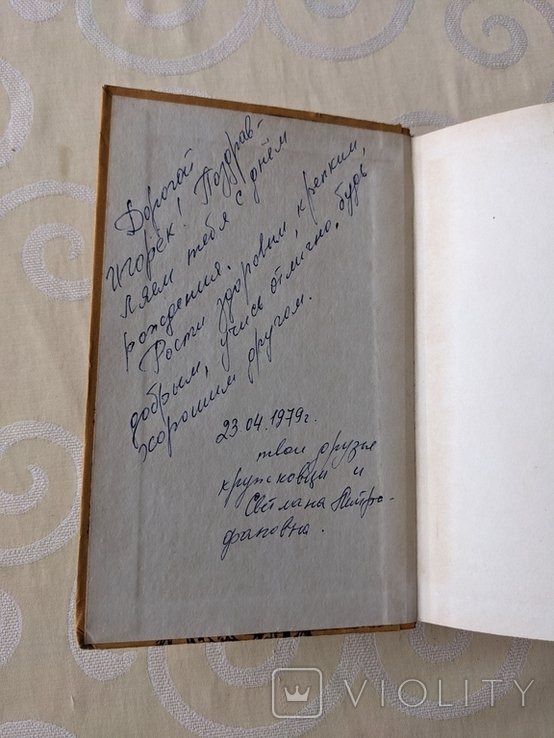 Дорогой
Игорёк! Поздрав-
ляем тебя с днём
рождения.
Рости здоровым, крепким,
добрым, учись отлично, будь
хорошим другом.
23.04.1979г.
твои друзья
кружковцы и
Светлана Митро-
фановна.
VIOLITY